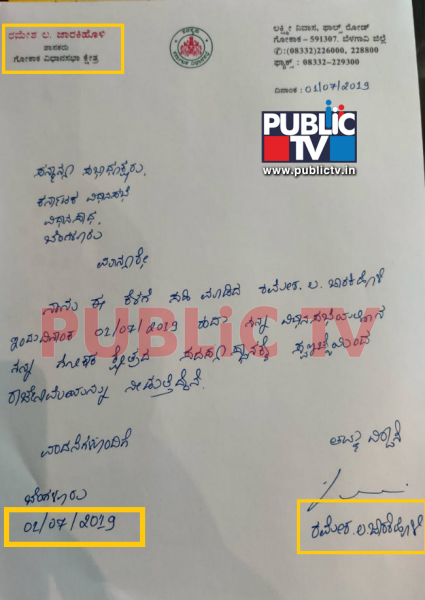 ರಮೇಶ ಲ. ಜಾರಕಿಹೊಳಿ
ಶಾಸಕರು
ಗೋಕಾಕ ವಿಧಾನಸಭಾ ಕ್ಷೇತ್ರ
ಲಕ್ಷ್ಮೀ ನಿವಾಸ, ಫಾಲ್ಸ್ ರೋಡ್
ಗೋಕಾಕ - 591307. ಬೆಳಗಾವಿ ಜಿಲ್ಲೆ
✆:(08332)226000, 228800
ಫ್ಯಾಕ್ಸ್ : 08332-229300
ದಿನಾಂಕ : 01/07/2019
PUBLIC
TV
www.publictv.in
ಸನ್ಮಾನ್ಯ ಸಭಾಧ್ಯಕ್ಷರು,
ಕರ್ನಾಟಕ ವಿಧಾನಸಭೆ
ವಿಧಾನಸೌಧ,
ಬೆಂಗಳೂರು
ಮಾನ್ಯರೇ
ನಾನು ಈ ಕೆಳಗೆ ಸಹಿ ಮಾಡಿದ ರಮೇಶ. ಲ. ಜಾರಕಿಹೊಳಿ
ಇಂದು ದಿನಾಂಕ 01/07/2019 ರಂದು ನನ್ನ ವಿಧಾನಸಭೆಯ
ನನ್ನ ಗೋಕಾಕ ಕ್ಷೇತ್ರದ ಸದಸ್ಯ ಸ್ಥಾನಕ್ಕೆ ಸ್ವಇಚ್ಛೆಯಿಂದ
ರಾಜೀನಾಮೆಯನ್ನು ನೀಡುತ್ತಿದ್ದೇನೆ.
PUBLiC TV
ವಂದನೆಗಳೊಂದಿಗೆ
ತಮ್ಮ ವಿಶ್ವಾಸಿ
ಬೆಂಗಳೂರು
01/07/2019
ರಮೇಶ.ಲ.ಜಾರಕಿಹೊಳಿ